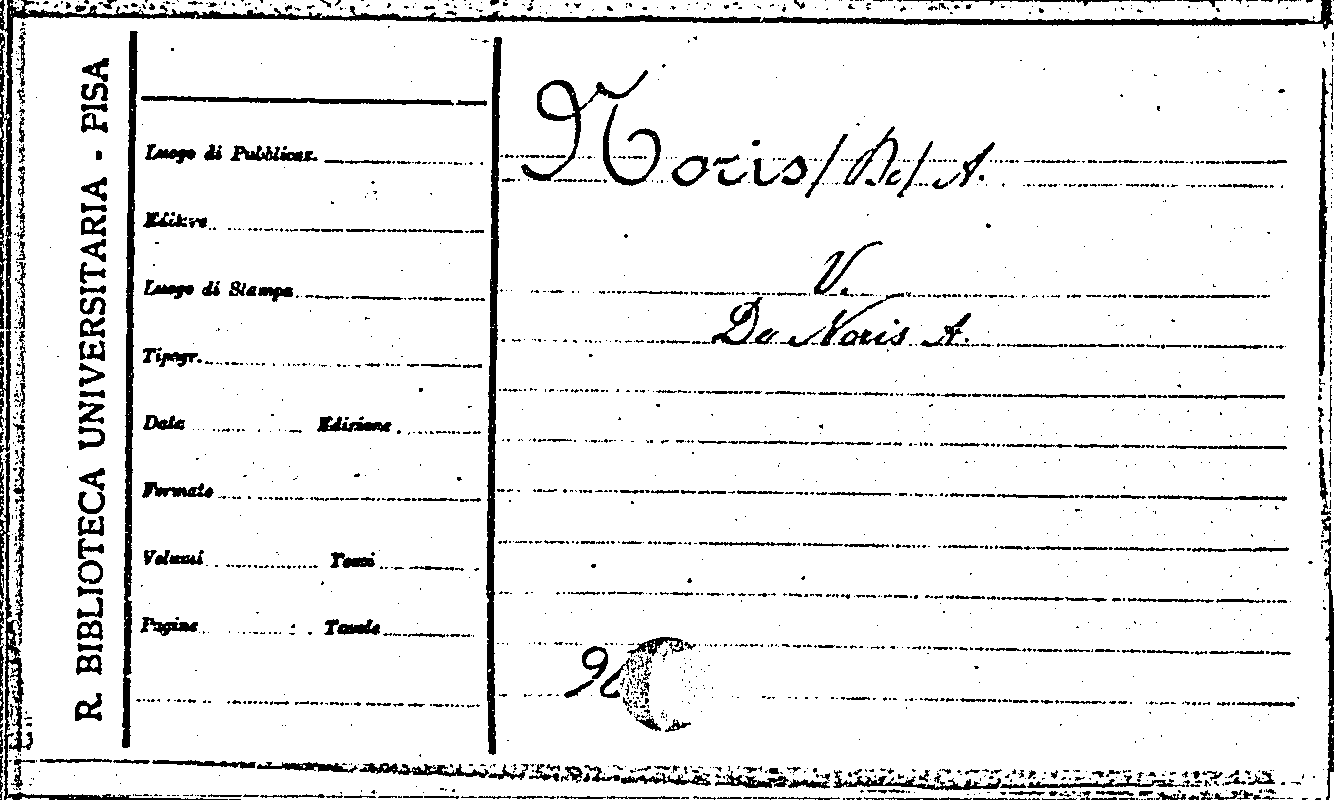 R. BIBLIOTECA UNIVERSITARIA - PISA
Luogo di Pubblicaz.
Editore
Luogo di Stampa
Tipogr.
Data Edizione
Formato
Volumi Tomi
Pagine Tavole
Noris /De/ A.
V.
De Noris A.